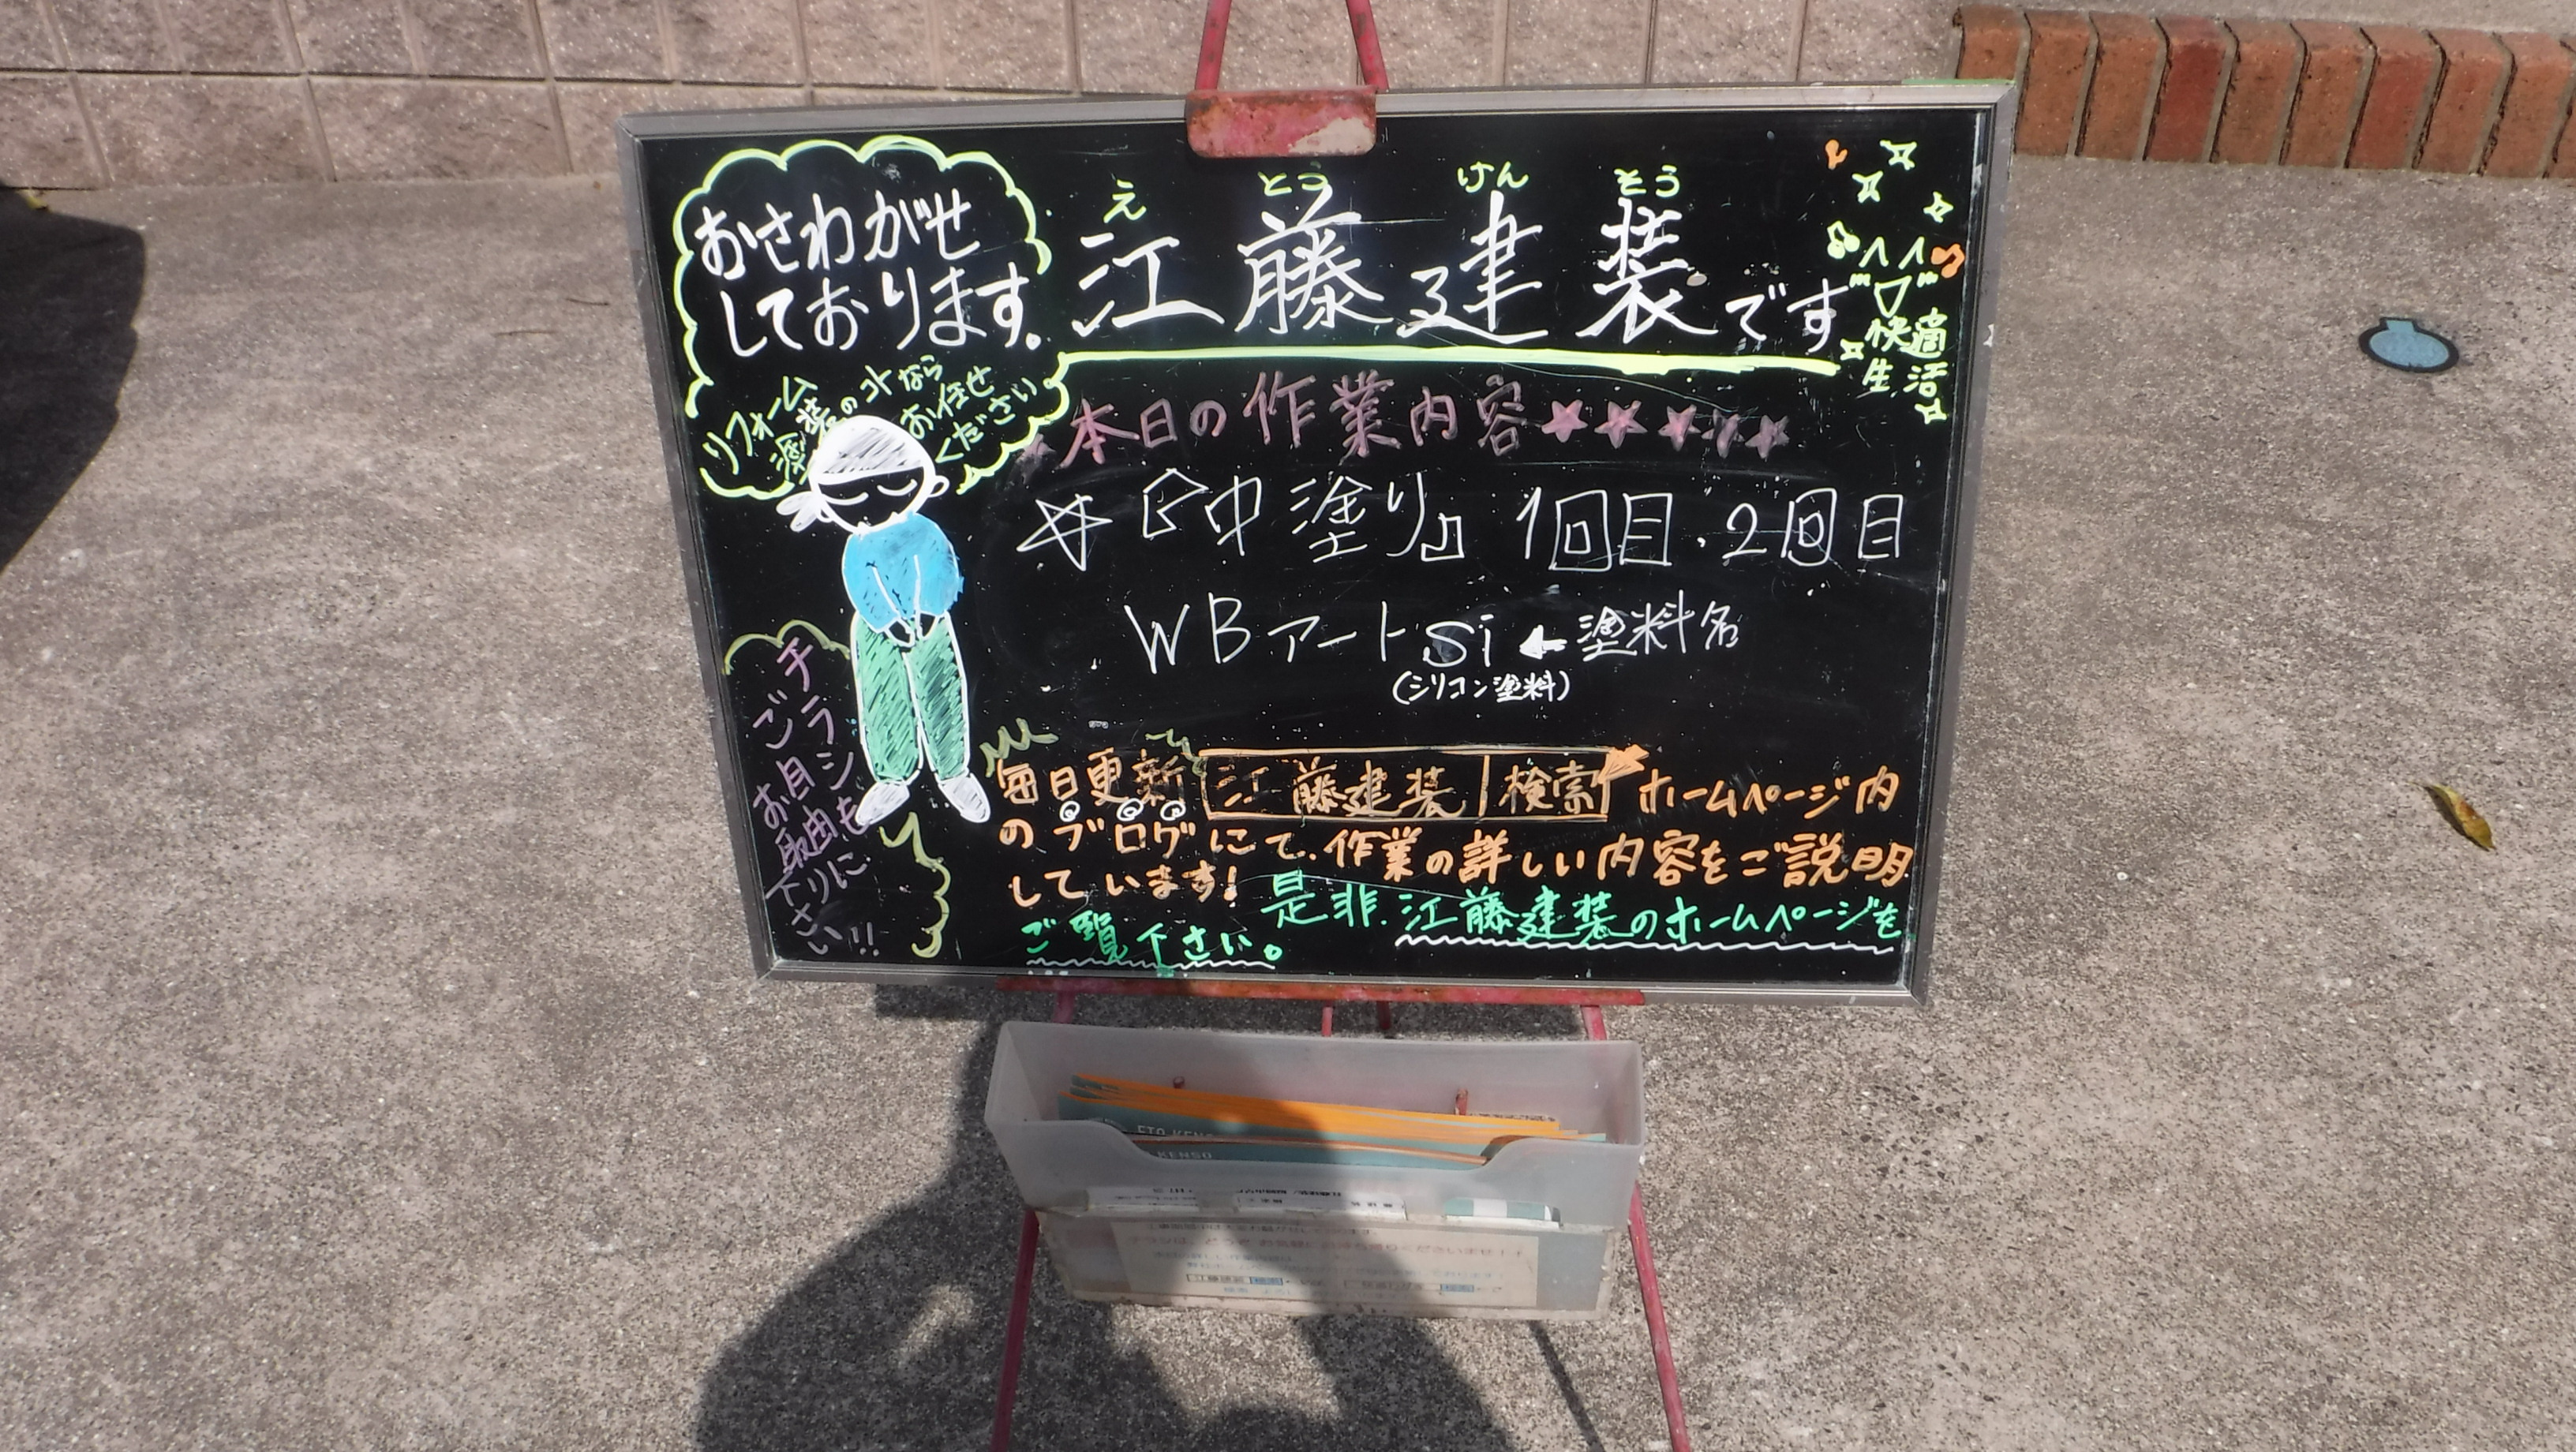 おさわがせ
しております。
リフォーム
塗装のコトなら
お任せ
ください
え とう けん とう
江藤建装です
快適
生活
本日の作業内容
『中塗り』 1回目・2回目
WBアートSi ← 塗料名
(シリコン塗料)
チラシも
ご自由に
お取り
下さい!!
毎日更新 江藤建装 検索 ホームページ内
のブログにて、作業の詳しい内容をご説明
しています!
是非、江藤建装のホームページを
ご覧下さい。
KENSO